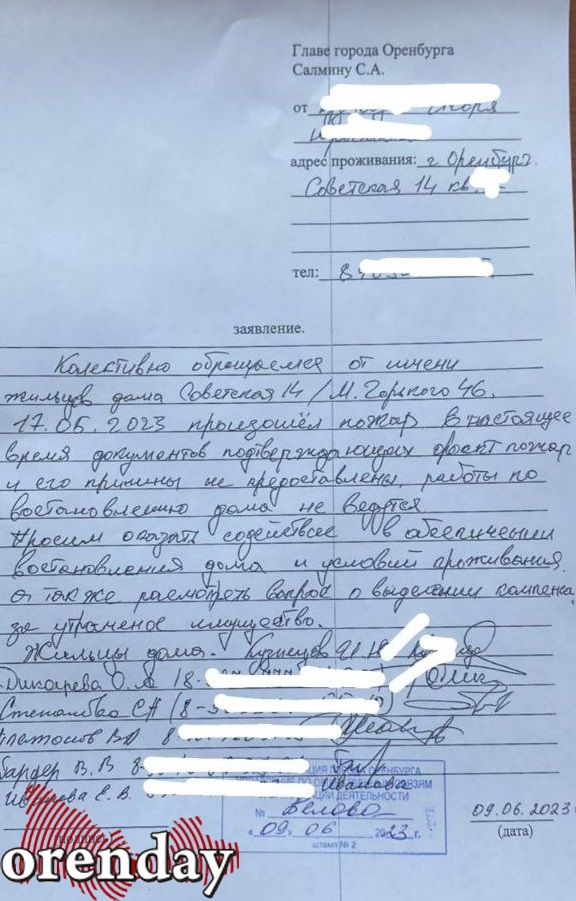 Главе города Оренбурга
Салмину С.А.
от
адрес проживания: г Оренбург.
Советская 14 кв
тел:
заявление.
Колективно обращаемся от имени
жильцов дома Советская 14/М. Горького 46.
17.05.2023 произошёл пожар в настоящее
время документов подтверждающих факт пожар
и его причины не предоставлены, работы по
востановлению дома не ведутся
Просим оказать содействие в обеспечении
востановления дома и условий проживания.
а так же расмотреть вопрос о выделении компенса
за утраченое имущество.
Жильцы дома. Кузнецов
Дикарева О.А (8-
Степанова СА (8-
8
Бардер В.В 8
Е.В. Иванова
ОРЕНБУРГА
СВЯЗЯМ
ДЕЯТЕЛЬНОСТИ
№ Белова
«09» 06 2023 г.
штамп № 2
09.06.2023
(дата)
orenday